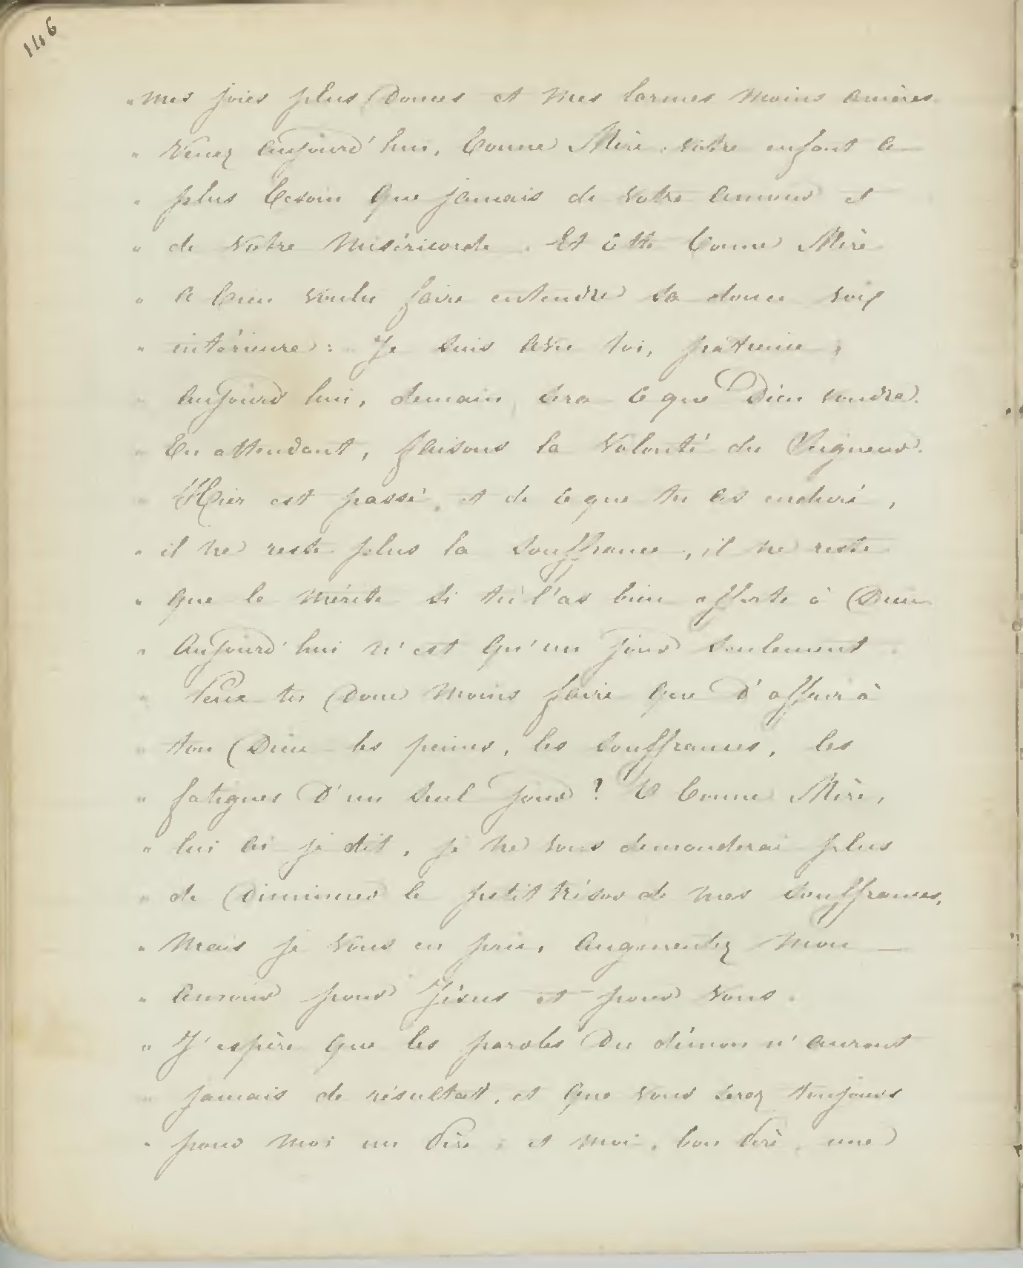 146
" mes joies plus douces et mes larmes moins amères.
" Venez aujourd'hui, bonne Mère, votre enfant a
" plus besoin que jamais de votre amour et
" de votre miséricorde. Et cette bonne Mère
" a bien voulu faire entendre sa douce voix
" intérieure : Je suis avec toi, patience,
" aujourd'hui, demain sera ce que Dieu voudra.
" En attendant, faisons la volonté du Seigneur.
" Hier est passé, et de ce que tu as enduré,
" il ne reste plus la souffrance, il ne reste
" que le mérite si tu l'as bien offerte à Dieu
" Aujourd'hui n'est qu'un jour seulement.
" Peux tu donc moins faire que d'offrir à
" ton Dieu les peines, les souffrances, les
" fatigues d'un seul jour ? O bonne Mère,
" lui ai-je dit, je ne vous demanderai plus
" de diminuer le petit trésor de mes souffrances,
" mais je vous en prie, augmentez mon
" amour pour Jésus et pour vous.
" J'espère que les paroles du démon n'auront
" jamais de résultat, et que vous serez toujours
" pour moi un Père, et moi, bon Père, une